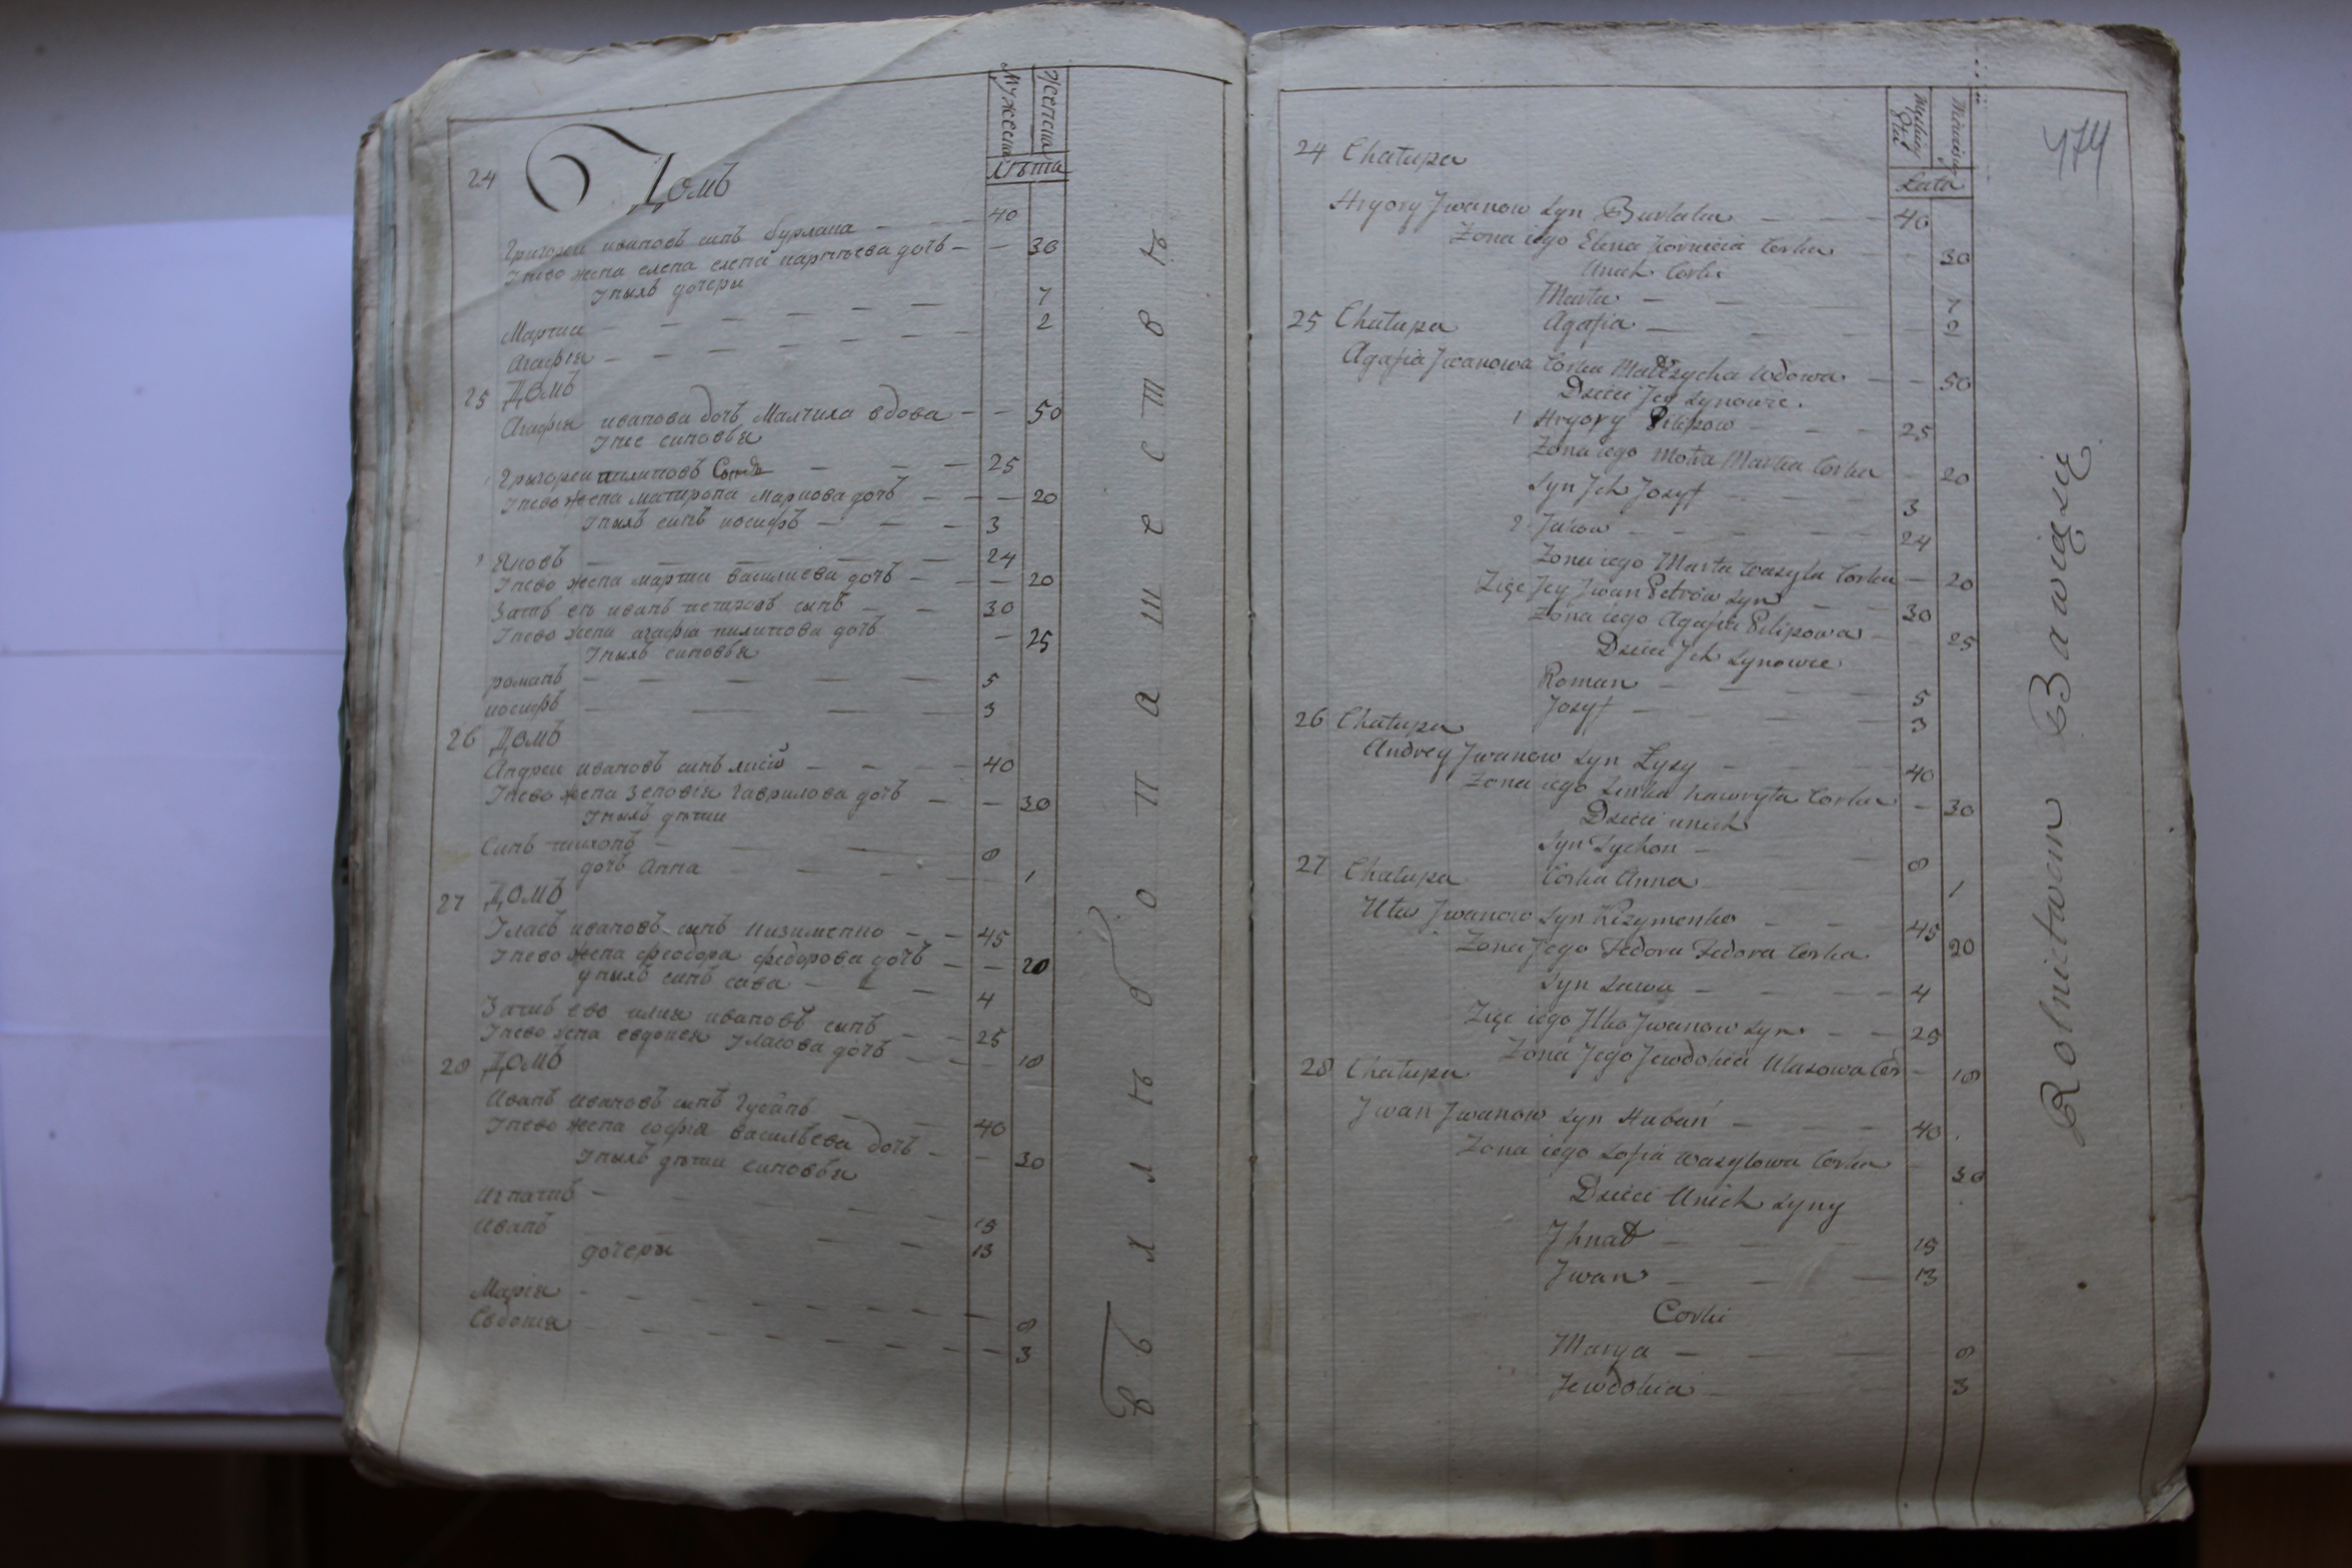 Мужеска
Женска
Лѣта
24 Домъ
Григореи ивановъ синъ бурлака — 40
Унево жена елена елена карпѣева дочъ — 30
Унихъ дочери
Марчиа — 7
Агафія — 2
25 Домъ
Агафія иванова дочъ Малчиха вдова — 50
Унее синовья
Григореи пилиповъ — 25
Унево жена матирона Маркова дочъ — 20
Унихъ синъ иосифъ — 3
2 Яковъ — 24
Унево жена марта василиева дочъ — 20
Зять еи иванъ петровъ синъ — 30
Унево жена агафіа пилипова дочъ — 25
Унихъ синовья
романъ — 5
иосифъ — 3
26 Домъ
Андреи ивановъ синъ лисій — 40
Унево жена Зеновія гаврилова дочъ — 30
Унихъ дѣти
Синъ тихонъ — 8
дочъ Анна — 1
27 Домъ
Уласъ ивановъ синъ Кизименко — 45
Унево жена феодора федорова дочъ — 20
унихъ синъ сава — 4
Зять ево илия ивановъ синъ — 25
Унево жена евдокея Уласова дочъ — 18
28 Домъ
Иванъ ивановъ синъ Губанъ — 40
Унево жена софія васильева дочъ — 30
Унихъ дѣти синовья
Игнатиъ — 15
Иванъ — 13
дочери
Марія — 8
Евдокія — 3
въ хлѣбопашествѣ
474
Lata
24 Chałupa
Hryory Jwanow Syn Burłaka — 40
Żona iego Elena Kornieia Corka — 30
Unich Corki
Marta — 7
Agafia — 2
25 Chałupa
Agafia Jwanowa Corka Małczycha wdowa — 50
Dzieci Jey Synowie.
1 Hryory Pilipow — 25
Żona iego Motra Marka Corka — 20
Syn Jch Jozyf — 3
2 Jakow — 24
Żona iego Marta Wasyla Corka — 20
Zięć Jey Jwan Petrów Syn — 30
Żona iego Agafia Pilipowa — 25
Dzieci Jch Synowie
Roman — 5
Jozyf — 3
26 Chałupa
Andrey Jwanow Syn Łysy — 40
Żona iego Zinka hawryła Corka — 30
Dzieci unich
Syn Tychon — 8
Corka Anna — 1
27 Chałupa
Ułas Jwanow Syn Kizymenko — 45
Żona Jego Fedora Fedora Corka — 20
Syn Sawa — 4
Zięć iego Jlko Jwanow Syn — 25
Żona Jego Jewdokiia Ułasowa Cor — 18
28 Chałupa
Jwan Jwanow Syn Hubań — 40
Żona iego Zofia Wasylowa Corka — 30
Dzieci Unich Syny
Jhnat — 15
Jwan — 13
Corki
Marya — 8
Jewdokia — 3
Rolnictwem Bawią się